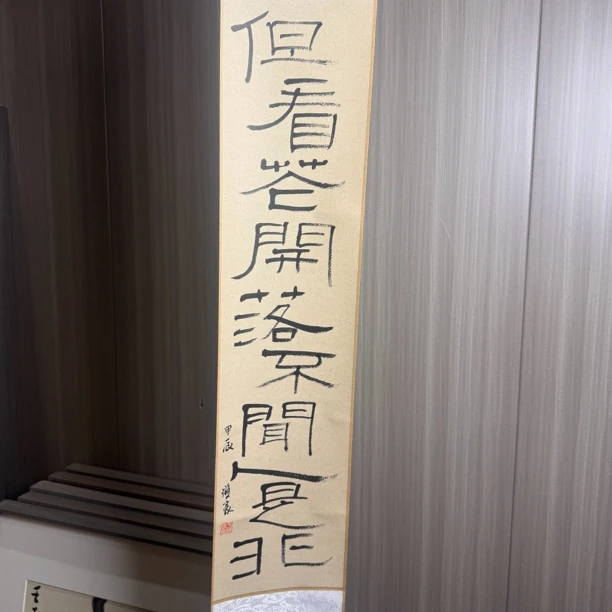 但看花開落不聞人是非
甲辰